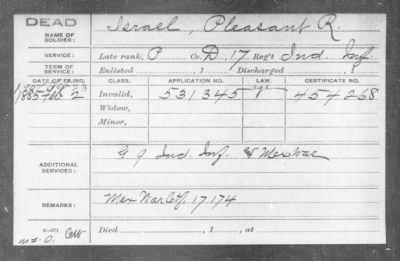 DEAD
NAME OF SOLDIER: Israel, Pleasant R.
SERVICE: Late rank, P Co. D, 17 Reg't Ind. Inf
TERM OF SERVICE: Enlisted , 1 Discharged , 1
DATE OF FILING. CLASS. APPLICATION NO. LAW. CERTIFICATE NO.
1885 2 Invalid, 531345 454258
Widow,
Minor,
ADDITIONAL SERVICES: G 9 Ind. Inf. & Mex War
REMARKS: Mex War Ctf. 17174
Died , 1 , at